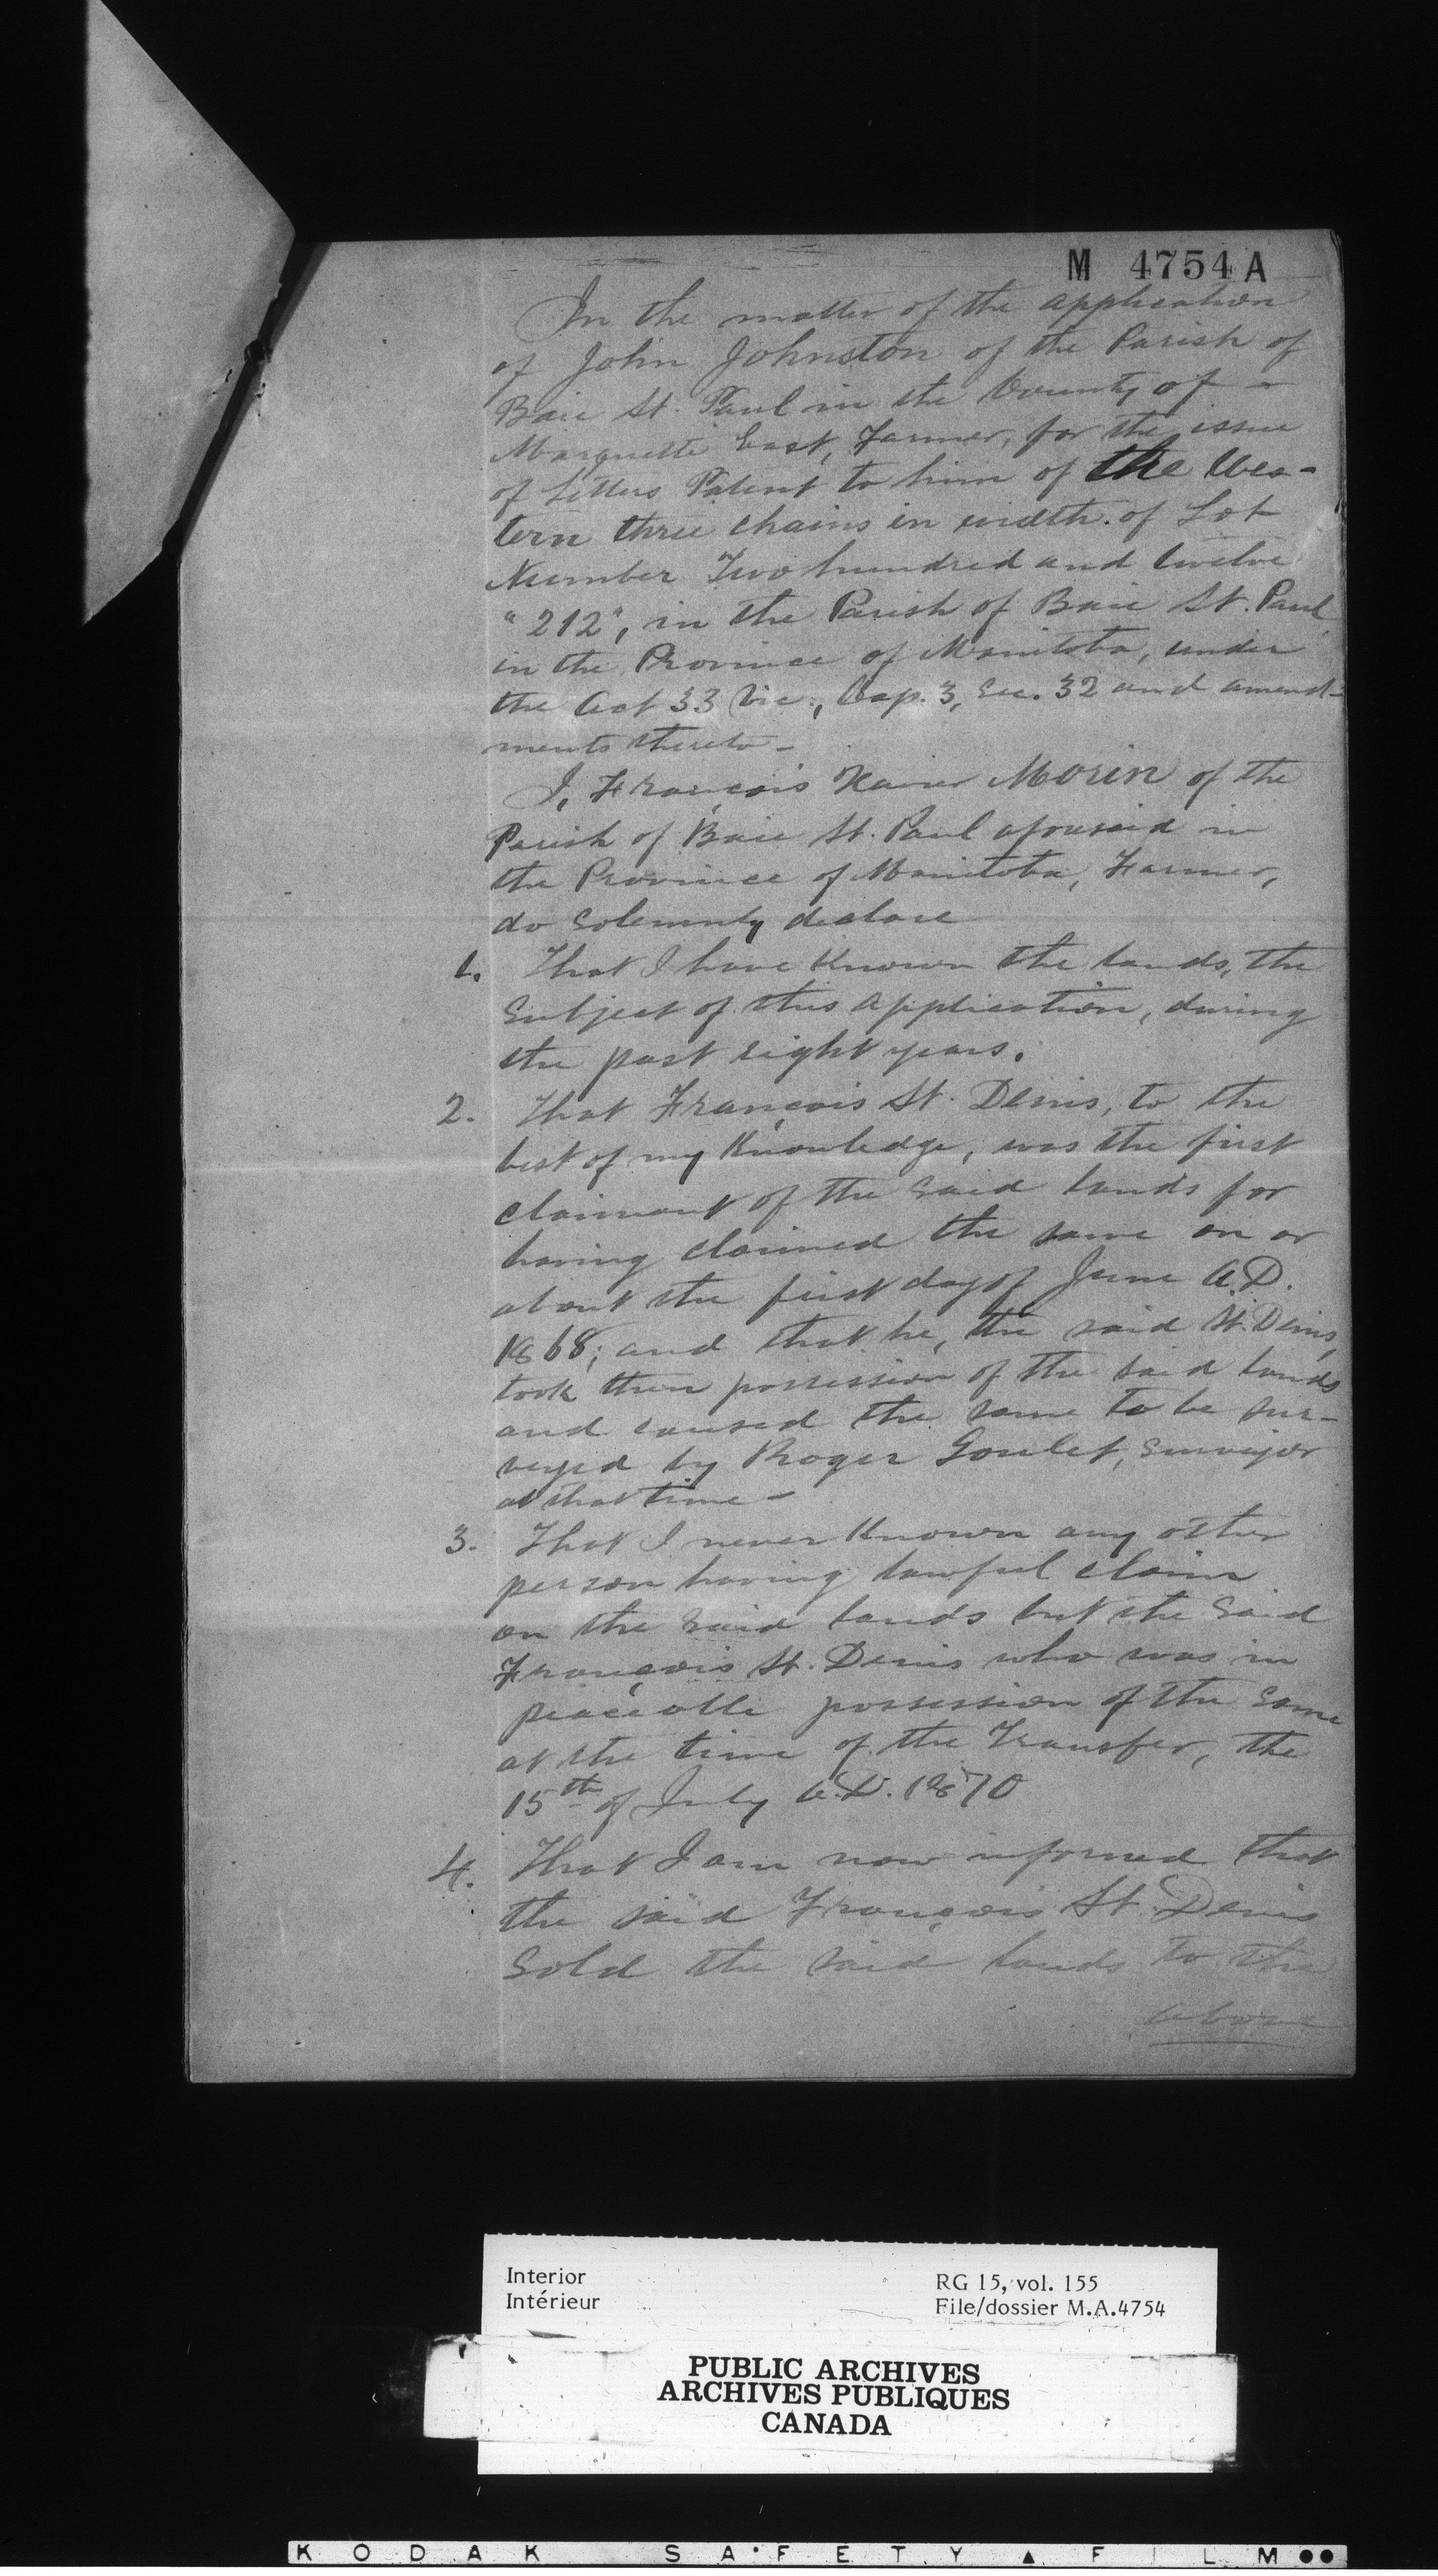 M 4754 A
In the matter of the application
of John Johnston of the Parish of
Baie St. Paul in the County of -
Marquette East, Farmer, for the issue
of Letters Patent to him of the Wes-
tern three chains in width of Lot
Number Two hundred and twelve
"212", in the Parish of Baie St. Paul
in the Province of Manitoba, under
the Act 33 Vic., Cap. 3, Sec. 32 and amend-
ments thereto -
I, François Xavier Morin of the
Parish of Baie St. Paul aforesaid in
the Province of Manitoba, Farmer,
do solemnly declare
1. That I have known the lands, the
subject of this application, during
the past eight years.
2. That François St. Denis, to the
best of my knowledge, was the first
claimant of the said lands for
having claimed the same on or
about the first day of June A.D.
1868; and that he, the said St. Denis,
took then possession of the said lands
and caused the same to be sur-
veyed by Roger Goulet, Surveyor
at that time -
3. That I never known any other
person having lawful claim
on the said lands but the said
François St. Denis who was in
peaceable possession of the same
at the time of the Transfer, the
15th of July A.D. 1870
4. That I am now informed that
the said François St. Denis
sold the said lands to the
above
Interior
Intérieur
RG 15, vol. 155
File/dossier M.A.4754
PUBLIC ARCHIVES
ARCHIVES PUBLIQUES
CANADA
KODAK SAFETY ▲ FILM ●●